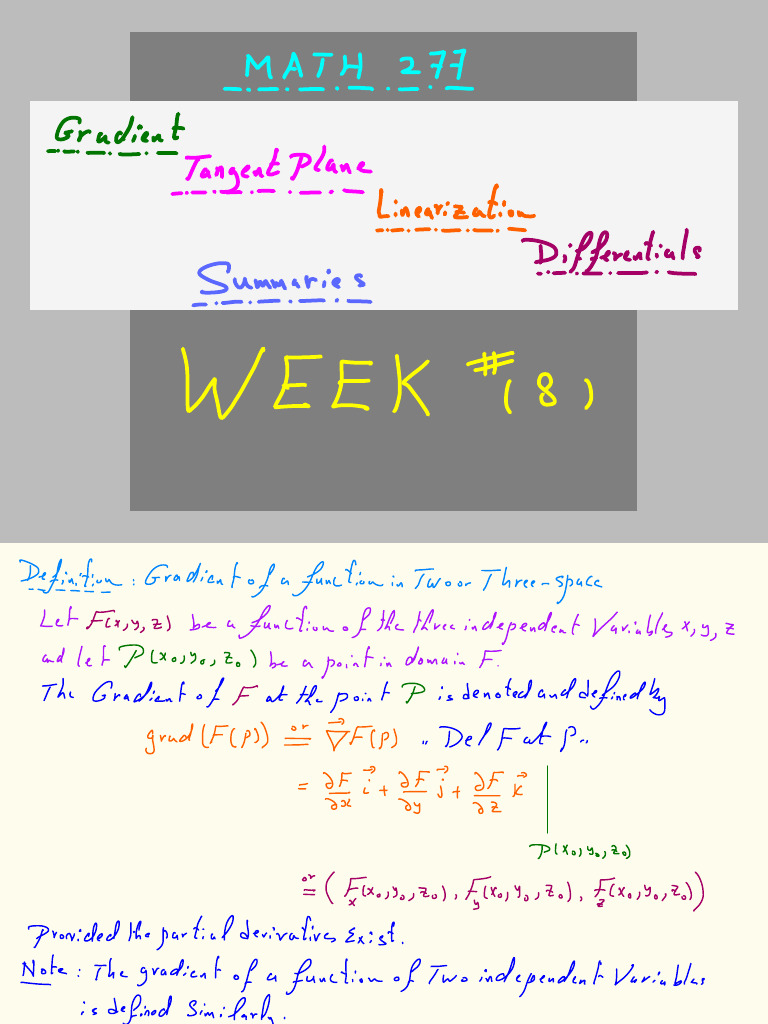 MATH 277
Gradient
Tangent Plane
Linearization
Differentials
Summaries
WEEK # (8)
Definition: Gradient of a function in Two or Three-space
Let F(x,y,z) be a function of the three independent Variables x,y,z
and let P(x₀,y₀,z₀) be a point in domain F.
The Gradient of F at the point P is denoted and defined by
grad(F(P)) =^or ∇⃗F(P) „ Del F at P„
= ∂F/∂x i⃗ + ∂F/∂y j⃗ + ∂F/∂z k⃗ |
P(x₀,y₀,z₀)
=^or (F_x(x₀,y₀,z₀), F_y(x₀,y₀,z₀), F_z(x₀,y₀,z₀))
Provided the partial derivatives Exist.
Note: The gradient of a function of Two independent Variables
is defined Similarly.